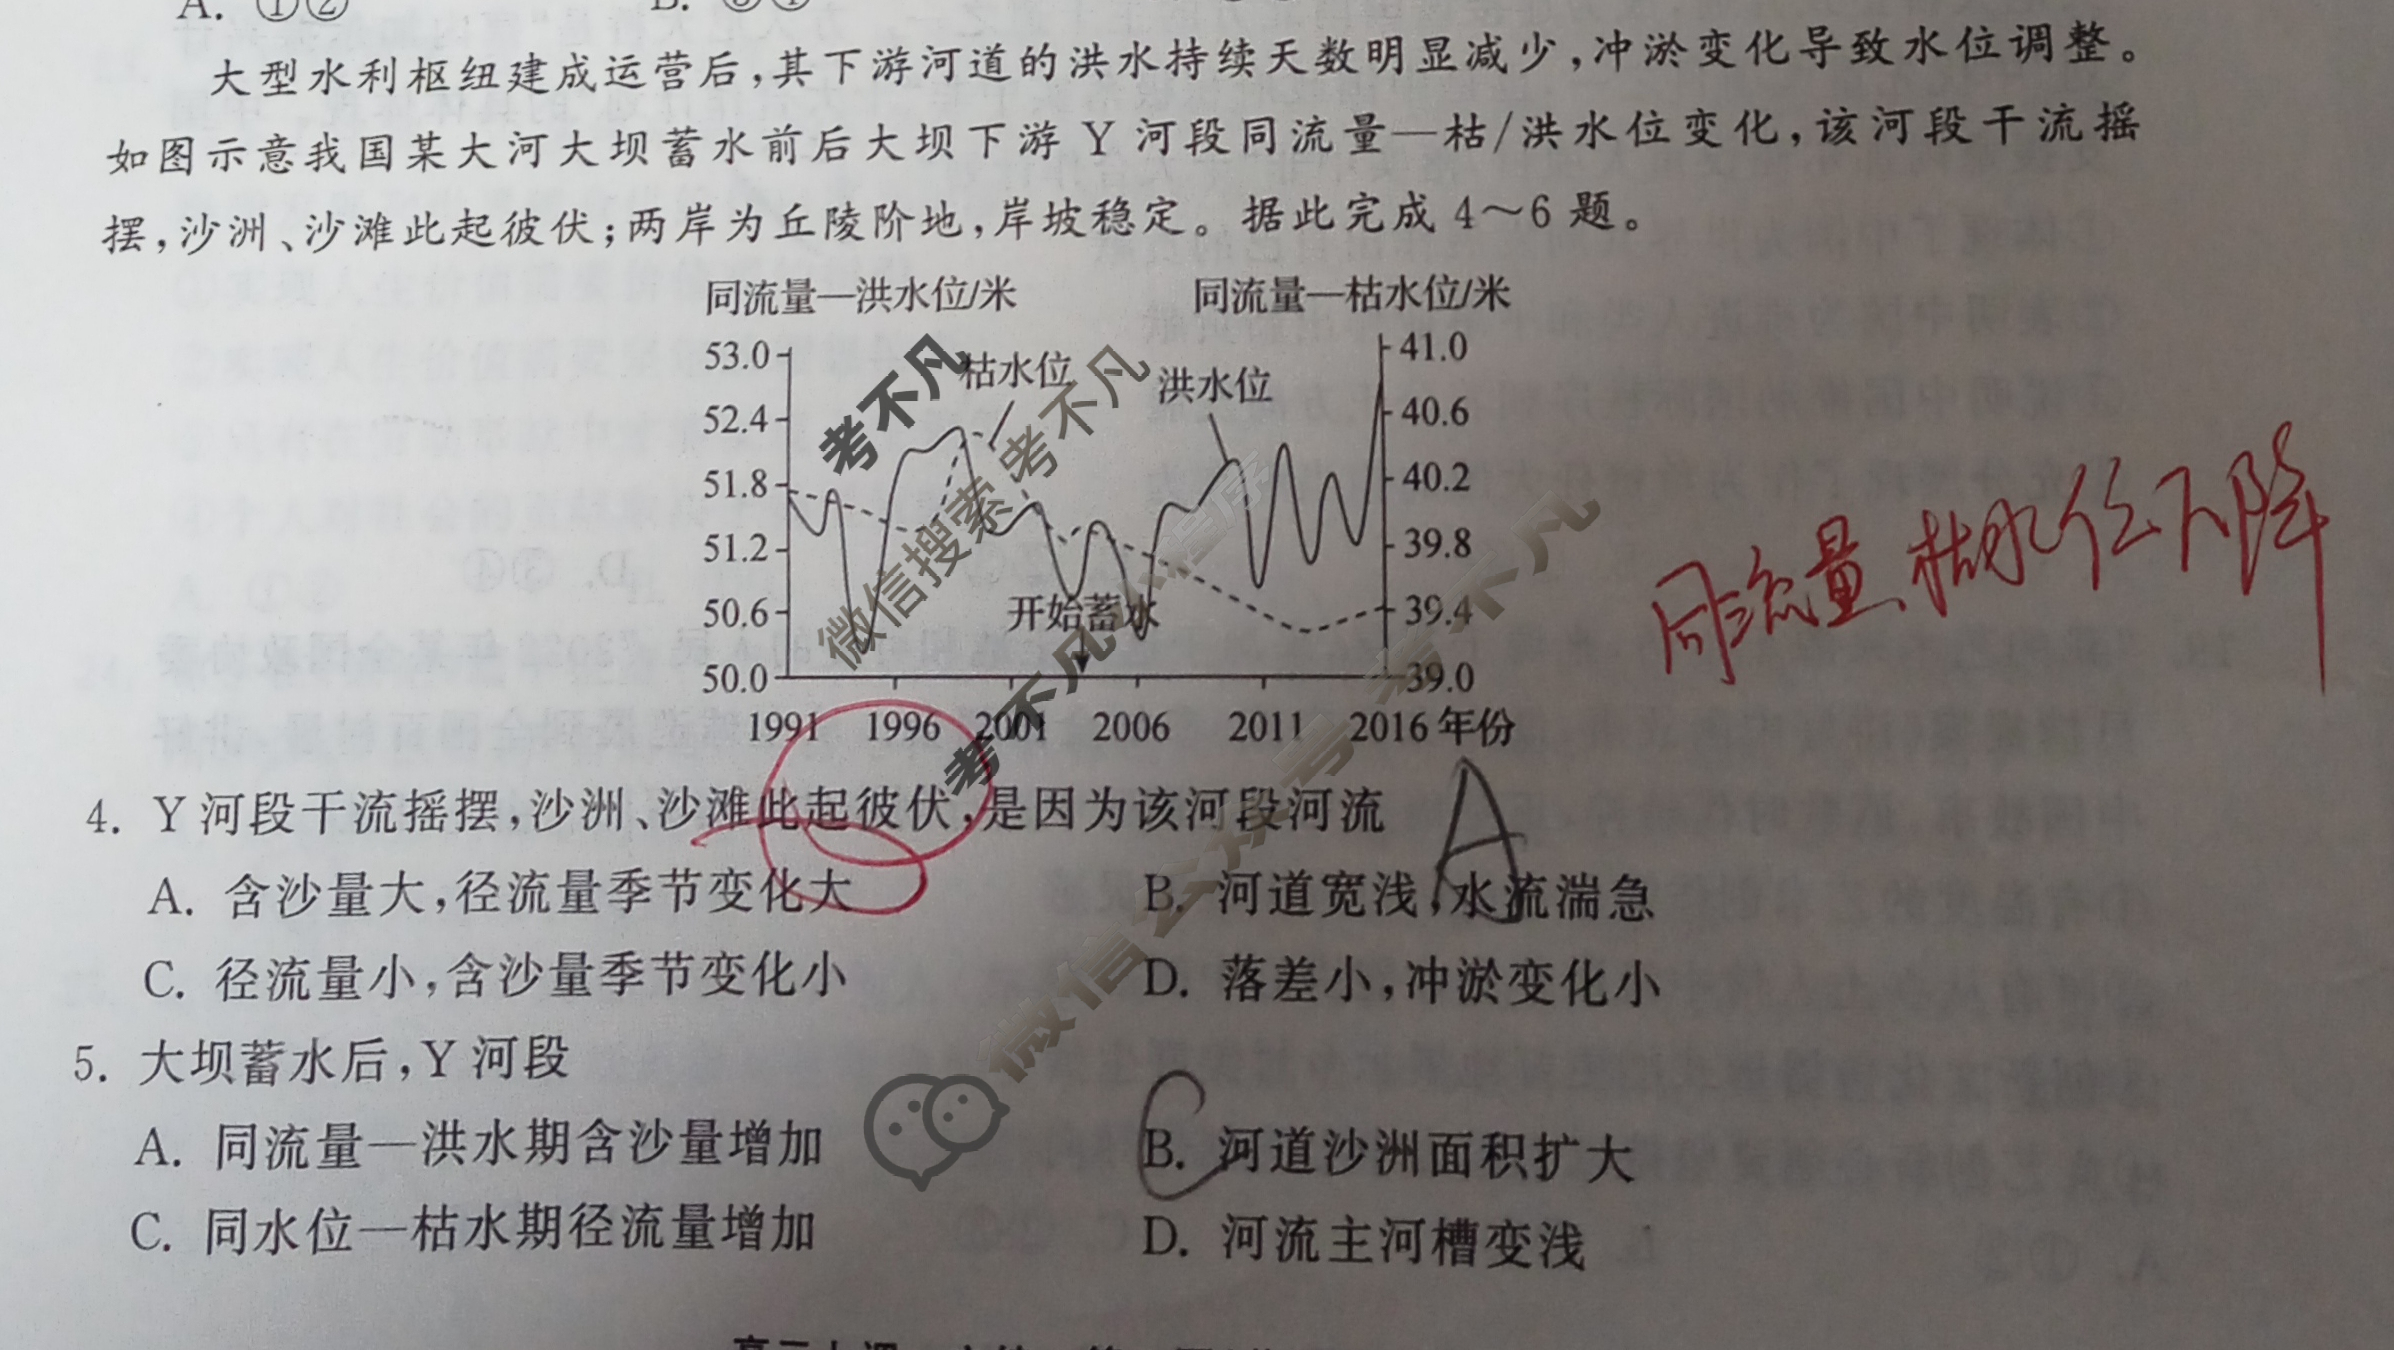 A. ①②
B. ③④
大型水利枢纽建成运营后,其下游河道的洪水持续天数明显减少,冲淤变化导致水位调整。
如图示意我国某大河大坝蓄水前后大坝下游 Y 河段同流量—枯/洪水位变化,该河段干流摇
摆,沙洲、沙滩此起彼伏;两岸为丘陵阶地,岸坡稳定。据此完成 4～6 题。
同流量—洪水位/米
同流量—枯水位/米
53.0
52.4
51.8
51.2
50.6
50.0
41.0
40.6
40.2
39.8
39.4
39.0
枯水位
洪水位
开始蓄水
1991 1996 2001 2006 2011 2016 年份
考不凡
微信搜索 考不凡
考不凡小程序
微信公众号 考不凡
同流量、枯水位下降
4. Y 河段干流摇摆,沙洲、沙滩此起彼伏,是因为该河段河流
A
A. 含沙量大,径流量季节变化大
B. 河道宽浅,水流湍急
C. 径流量小,含沙量季节变化小
D. 落差小,冲淤变化小
5. 大坝蓄水后,Y 河段
C
A. 同流量—洪水期含沙量增加
B. 河道沙洲面积扩大
C. 同水位—枯水期径流量增加
D. 河流主河槽变浅